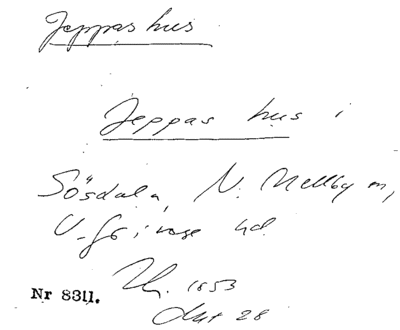 Jeppas hus
Jeppas hus i
Sösdala, N. Mellby sn,
V. Göinge hd
1853
Nr 8311.
28